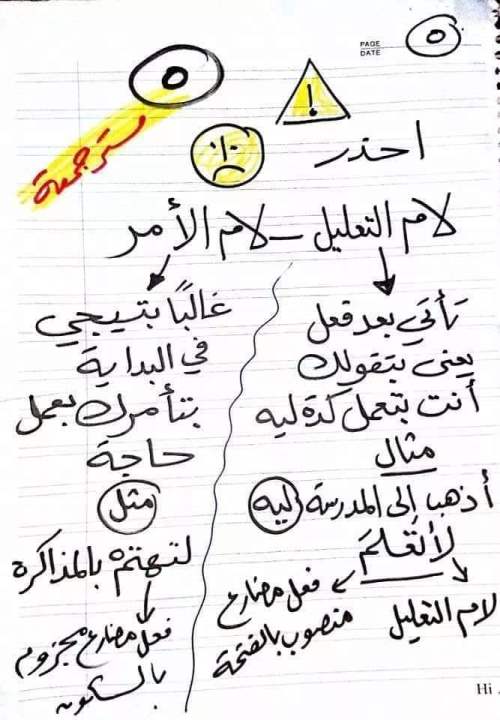 PAGE
DATE
٥
٥
مستر جمعة
!
احذر
لام التعليل - لام الأمر
تأتي بعد فعل
يعنى بتقولك
أنت بتعمل كدة ليه
مثال
أذهب إلى المدرسة ليه
لأتعلمَ
لام التعليل
فعل مضارع
منصوب بالفتحة
غالبًا بتيجي
في البداية
بتأمرك بعمل
حاجة
مثل
لتهتمْ بالمذاكرة
فعل مضارع مجزوم
بالسكون
Hi